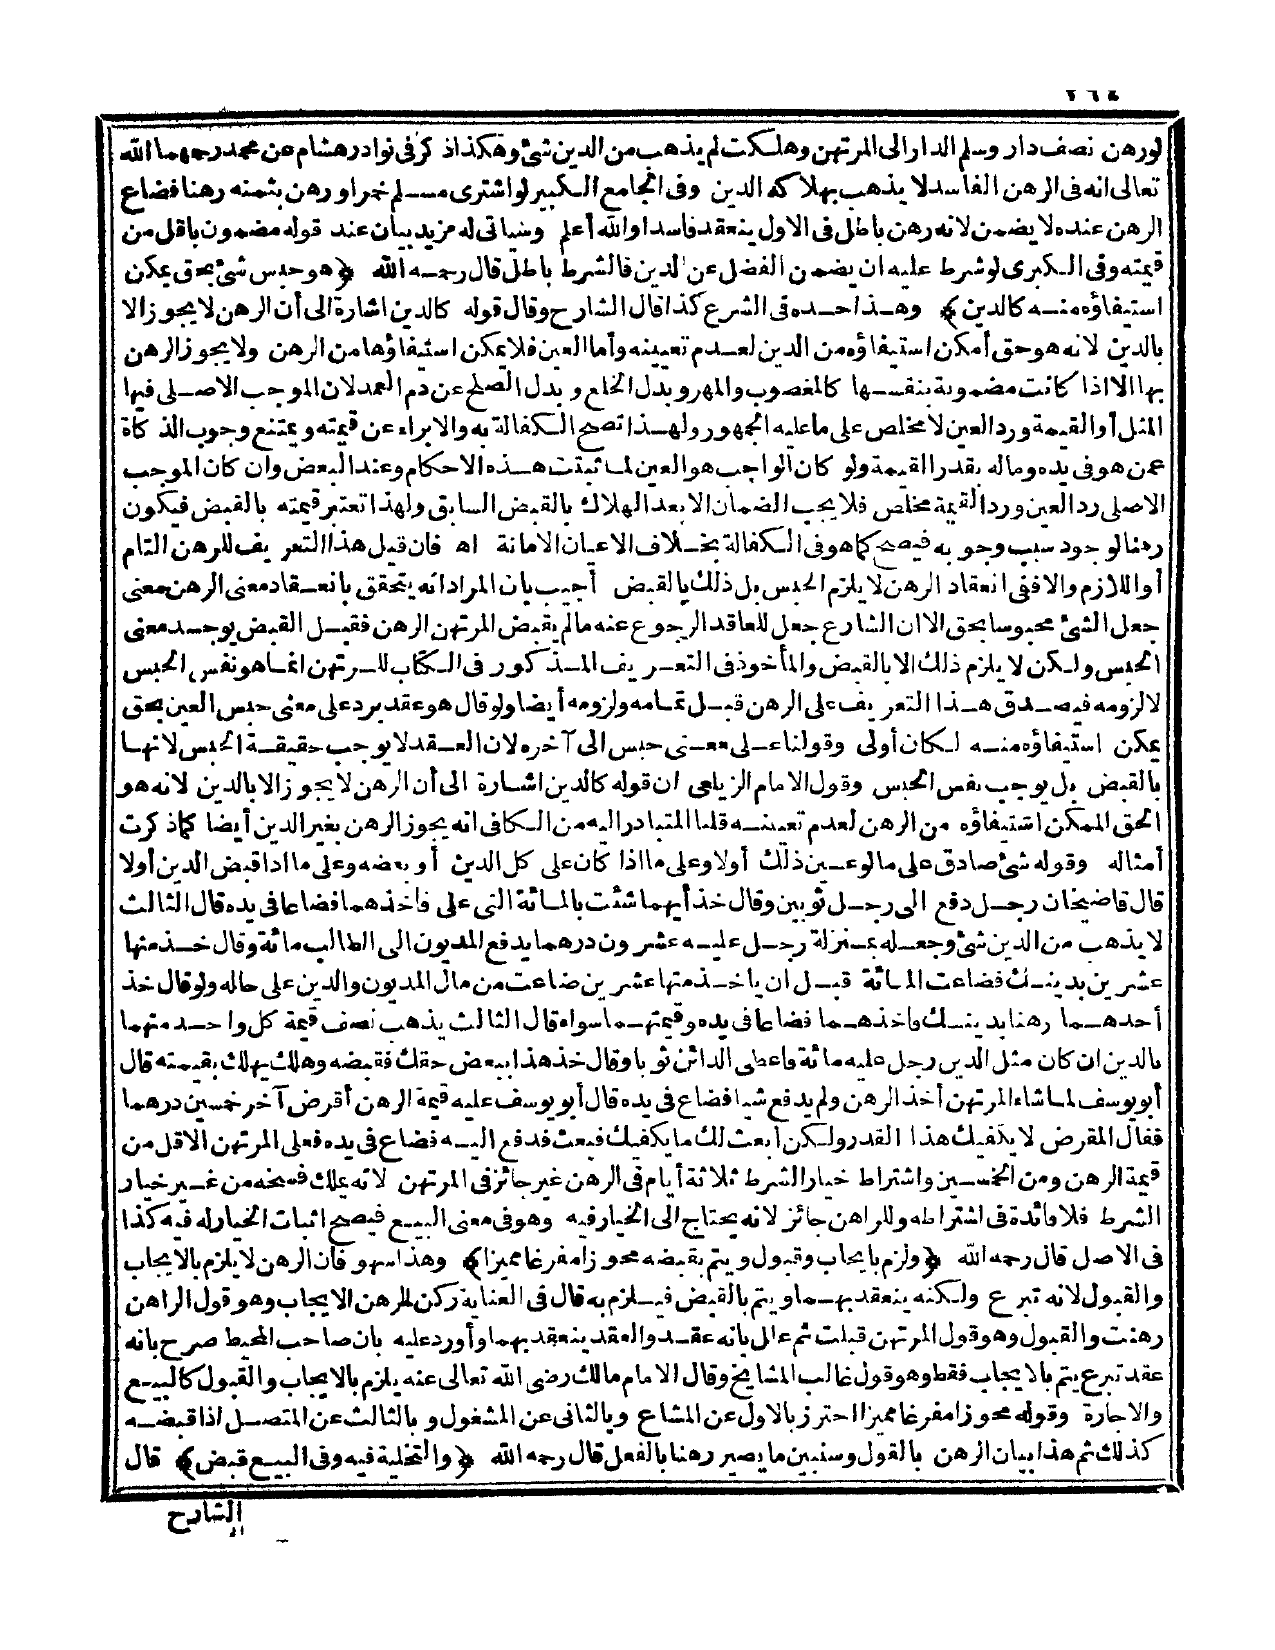 ٢٦٤
لورهن نصف دار وسلم الدار الى المرتهن وهلكت لم يذهب من الدين شئ وهكذا ذكر فى نوادر هشام عن محمد رحمهما الله
تعالى انه فى الرهن الفاسد لا يذهب بهلاكه الدين وفى الجامع الكبير لو اشترى مسلم خمرا ورهن بثمنه رهنا فضاع
الرهن عنده لا يضمن لانه رهن باطل فى الاول ينعقد فاسدا والله أعلم وسياتى له مزيد بيان عند قوله مضمون باقل من
قيمته وفى الكبرى لو شرط عليه ان يضمن الفضل عن الدين فالشرط باطل قال رحمه الله ﴿هو حبس شئ بحق يمكن
استيفاؤه منه كالدين﴾ وهذا حده فى الشرع كذا قال الشارح وقال قوله كالدين اشارة الى أن الرهن لا يجوز الا
بالدين لانه هو حق أمكن استيفاؤه من الدين لعدم تعيينه وأما العين فلا يمكن استيفاؤها من الرهن ولا يجوز الرهن
بها الا اذا كانت مضمونة بنفسها كالمغصوب والمهر وبدل الخلع وبدل الصلح عن دم العمد لان الموجب الاصلى فيها
المثل أو القيمة ورد العين لا مخلص على ما عليه الجمهور ولهذا تصح الكفالة به والابراء عن قيمته ويمتنع وجوب الذكاة
عمن هو فى يده وماله بقدر القيمة ولو كان الواجب هو العين لما ثبتت هذه الاحكام وعند البعض وان كان الموجب
الاصلى رد العين ورد القيمة مخلص فلا يجب الضمان الا بعد الهلاك بالقبض السابق ولهذا تعتبر قيمته بالقبض فيكون
رهنا لوجود سبب وجوبه فيصح كما هو فى الكفالة بخلاف الاعيان الامانة اه فان قيل هذا التعريف للرهن التام
أو اللازم والا ففى انعقاد الرهن لا يلزم الحبس بل ذلك بالقبض أجيب بان المراد انه يتحقق بانعقاد معنى الرهن معنى
جعل الشئ محبوسا بحق الا ان الشارع جعل للعاقد الرجوع عنه مالم يقبض المرتهن الرهن فقبل القبض يوجد معنى
الحبس ولكن لا يلزم ذلك الا بالقبض والمأخوذ فى التعريف المذكور فى الكتاب للمرتهن انما هو نفس الحبس
لا لزومه فيصدق هذا التعريف على الرهن قبل تمامه ولزومه أيضا ولو قال هو عقد يرد على معنى حبس العين بحق
يمكن استيفاؤه منه لكان أولى وقولنا على معنى حبس الى آخره لان العقد لا يوجب حقيقة الحبس لانها
بالقبض بل يوجب نفس الحبس وقول الامام الزيلعى ان قوله كالدين اشارة الى أن الرهن لا يجوز الا بالدين لانه هو
الحق الممكن استيفاؤه من الرهن لعدم تعيينه قلنا المتبادر اليه من الكافى انه يجوز الرهن بغير الدين أيضا كما ذكرت
أمثاله وقوله شئ صادق على ما لو عين ذلك أولا وعلى ما اذا كان على كل الدين أو بعضه وعلى ما اذا قبض الدين أولا
قال قاضيخان رجل دفع الى رجل ثوبين وقال خذ أيهما شئت بالمائة التى على فأخذهما فضاعا فى يده قال الثالث
لا يذهب من الدين شئ وجعله بمنزلة رجل عليه عشرون درهما يدفع المديون الى الطالب مائة وقال خذ منها
عشرين بدينك فضاعت المائة قبل ان ياخذ منها عشرين ضاعت من مال المديون والدين على حاله ولو قال خذ
أحدهما رهنا بدينك فاخذهما فضاعا فى يده وقيمتهما سواء قال الثالث يذهب نصف قيمة كل واحد منهما
بالدين ان كان مثل الدين رجل عليه مائة فاعطى الدائن ثوبا وقال خذ هذا ببعض حقك فقبضه وهلك يهلك بقيمته قال
أبو يوسف لما شاء المرتهن أخذ الرهن ولم يدفع شيا فضاع فى يده قال أبو يوسف عليه قيمة الرهن أقرض آخر خمسين درهما
فقال المقرض لا يكفيك هذا القدر ولكن ابعث لك ما يكفيك فبعث فدفع اليه فضاع فى يده فعلى المرتهن الاقل من
قيمة الرهن ومن الخمسين واشتراط خيار الشرط ثلاثة أيام فى الرهن غير جائز فى المرتهن لانه يملك فسخه من غير خيار
الشرط فلا فائدة فى اشتراطه وللراهن جائز لانه يحتاج الى الخيار فيه وهو فى معنى البيع فيصح اثبات الخيار له فيه كذا
فى الاصل قال رحمه الله ﴿ولزم بايجاب وقبول ويتم بقبضه محوزا مفرغا مميزا﴾ وهذا سهو فان الرهن لا يلزم بالايجاب
والقبول لانه تبرع ولكنه ينعقد بهما ويتم بالقبض فيلزم به قال فى العناية ركن الرهن الايجاب وهو قول الراهن
رهنت والقبول وهو قول المرتهن قبلت ثم علل بانه عقد والعقد ينعقد بهما وأورد عليه بان صاحب المحيط صرح بانه
عقد تبرع يتم بالايجاب فقط وهو قول غالب المشايخ وقال الامام مالك رضى الله تعالى عنه يلزم بالايجاب والقبول كالبيع
والاجارة وقوله محوزا مفرغا مميزا احترز بالاول عن المشاع وبالثانى عن المشغول وبالثالث عن المتصل اذا قبضه
كذلك ثم هذا بيان الرهن بالقول وسنبين ما يصير رهنا بالفعل قال رحمه الله ﴿والتخلية فيه وفى البيع قبض﴾ قال
الشارح